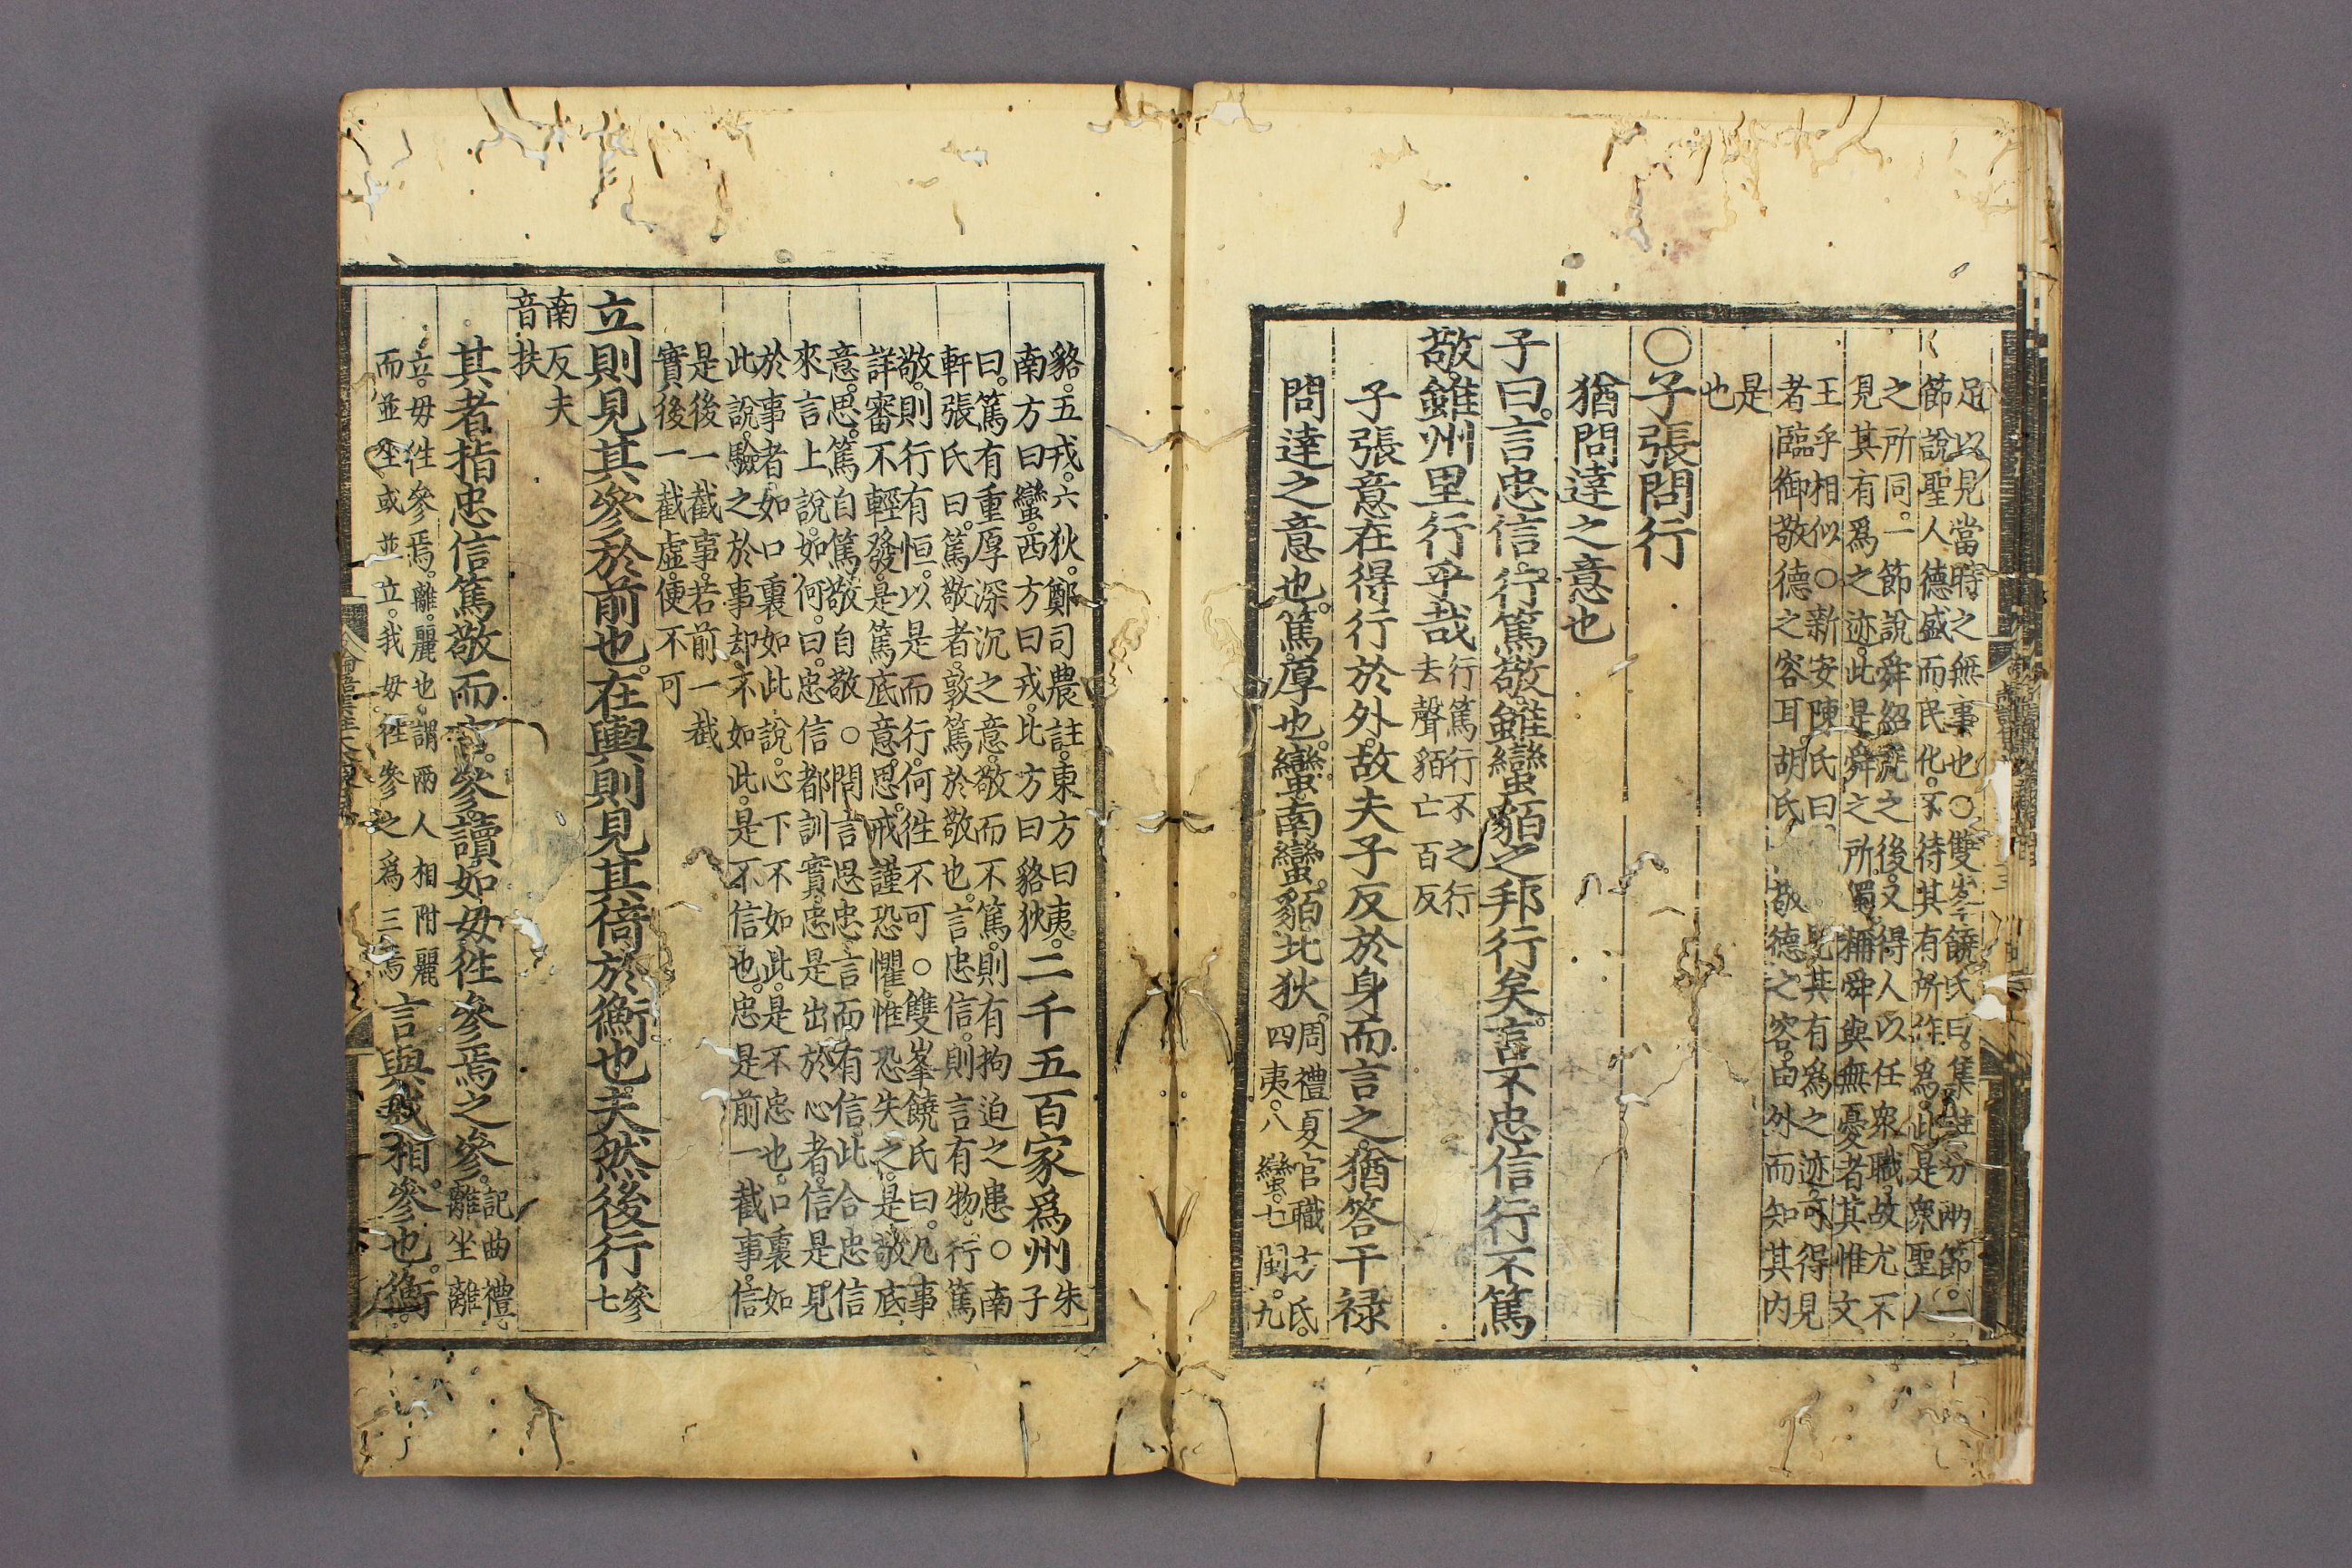 足以見當時之無事也○雙峯饒氏曰集註分兩節一
節說聖人德盛而民化不待其有所作爲此是衆聖人
之所同一節說舜紹堯之後又得人以任衆職故尤不
見其有爲之迹此是舜之所獨稱舜與無憂者其惟文
王乎相似○新安陳氏曰見其有爲之迹可得見
者臨御敬德之容耳胡氏敬德之容由外而知其内
是
也
○子張問行
猶問達之意也
子曰言忠信行篤敬雖蠻貊之邦行矣言不忠信行不篤
敬雖州里行乎哉
行篤行不之行
去聲貊亡百反
子張意在得行於外故夫子反於身而言之猶答干祿
問達之意也篤厚也蠻南蠻貊北狄
周禮夏官職方氏
四夷八蠻七閩九
貉五戎六狄鄭司農註東方曰夷
南方曰蠻西方曰戎北方曰貉狄
二千五百家爲州
朱
子
曰篤有重厚深沉之意敬而不篤則有拘迫之患○南
軒張氏曰篤敬者敦篤於敬也言忠信則言有物行篤
敬則行有恒以是而行何徃不可○雙峯饒氏曰凡事
詳審不輕發是篤底意思戒謹恐懼惟恐失之是敬底
意思篤自篤敬自敬○問言思忠言而有信此合忠信
來言上說如何曰忠信都訓實忠是出於心者信是見
於事者如口裏如此說心下不如此是不忠也口裏如
此說驗之於事却不如此是不信也忠是前一截事信
是後一截事若前一截
實後一截虛便不可
立則見其參於前也在輿則見其倚於衡也夫然後行
參
七
南反夫
音扶
其者指忠信篤敬而言參讀如毋徃參焉之參
記曲禮
離坐離
立毋徃參焉離麗也謂兩人相附麗
而並坐或並立我毋徃參之爲三焉
言與我相參也衡